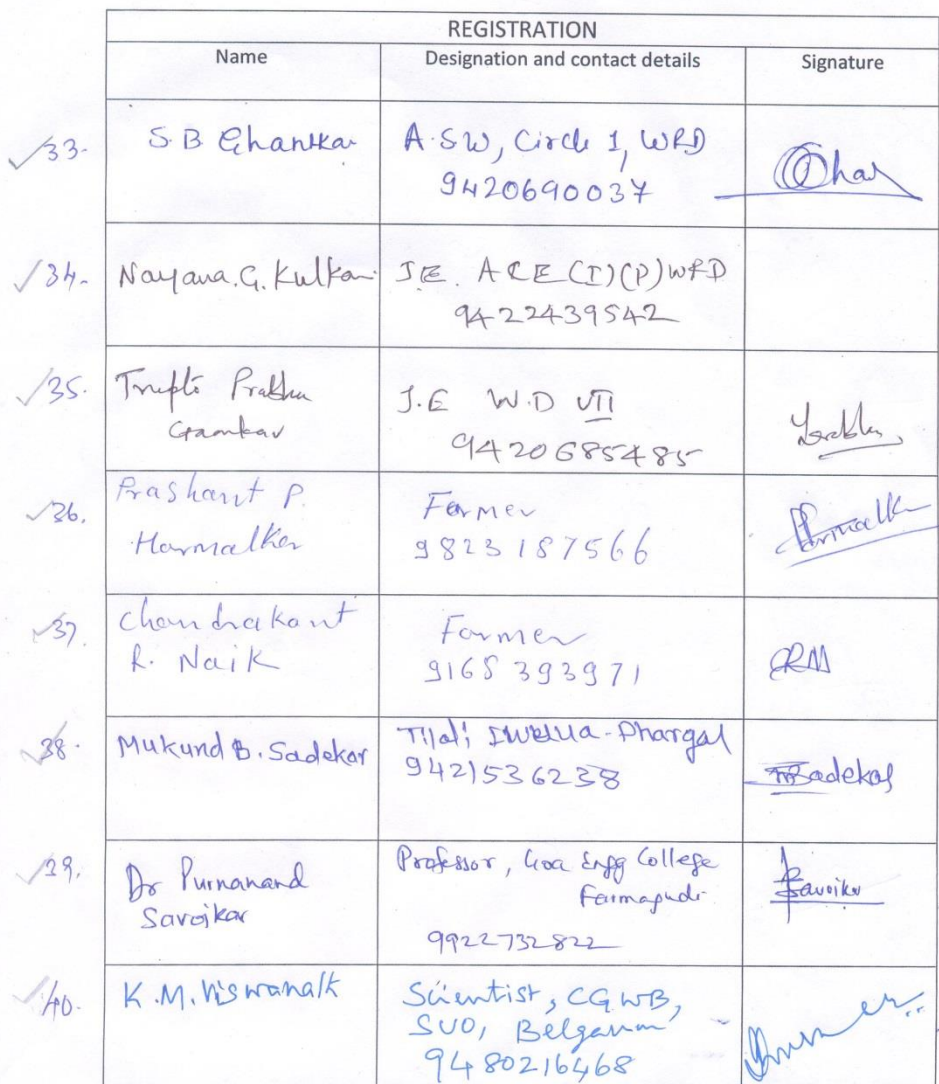 REGISTRATION
Name Designation and contact details Signature
33. S.B Ghantkar A.S.W, Circle I, WRD
9420690037
34. Nayana.G. Kulkar J.E. ACE (I)(P) WRD
9422439542
35. Trupti Prabhu J.E W.D VII
Gaonkar 9420685485
36. Prashant P. Farmer
Harmalkar 9823187566
37. Chandrakant Farmer
R. Naik 9168393971 CRN
38. Mukund B. Sadekar Tilari Dhargal
9421536238 MBSadekar
39. Dr Purnanand Professor, Goa Engg College
Savoikar Farmagudi Savoikar
9922732822
40. K.M. Viswanath Scientist, CGWB,
SUO, Belgaum
9480216468